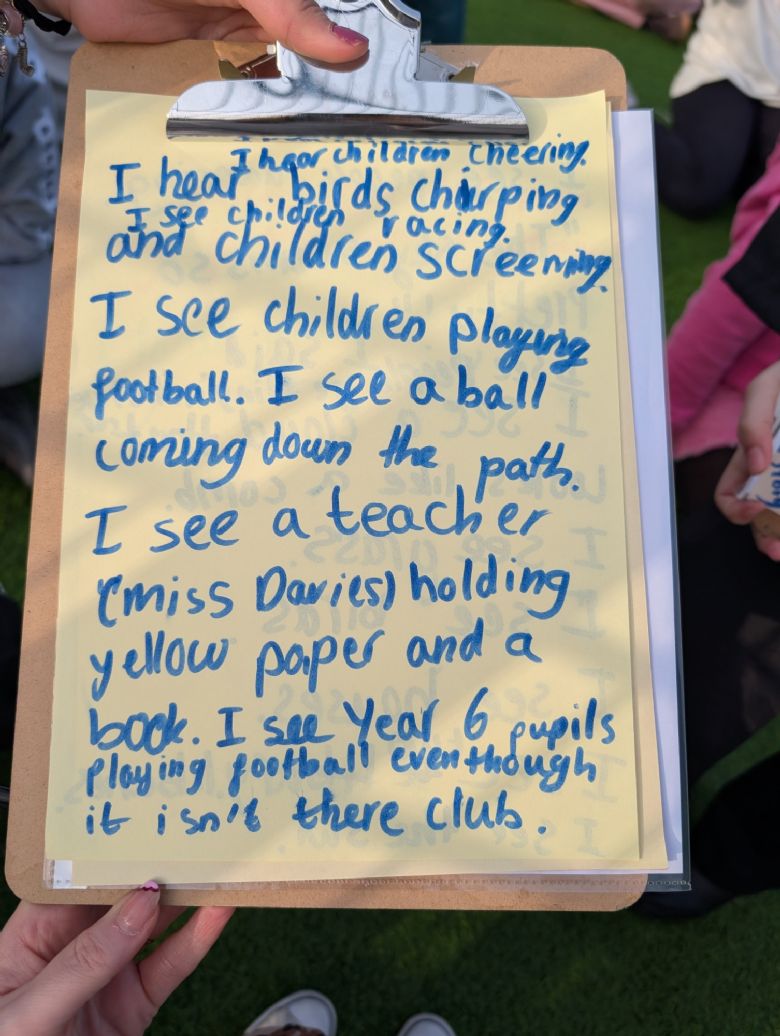 I hear children cheering.
I hear birds chirping
I see children racing.
and children screeming.
I see children playing
football. I see a ball
coming down the path.
I see a teacher
(miss Davies) holding
yellow paper and a
book. I see Year 6 pupils
playing football eventhough
it isn't there club.